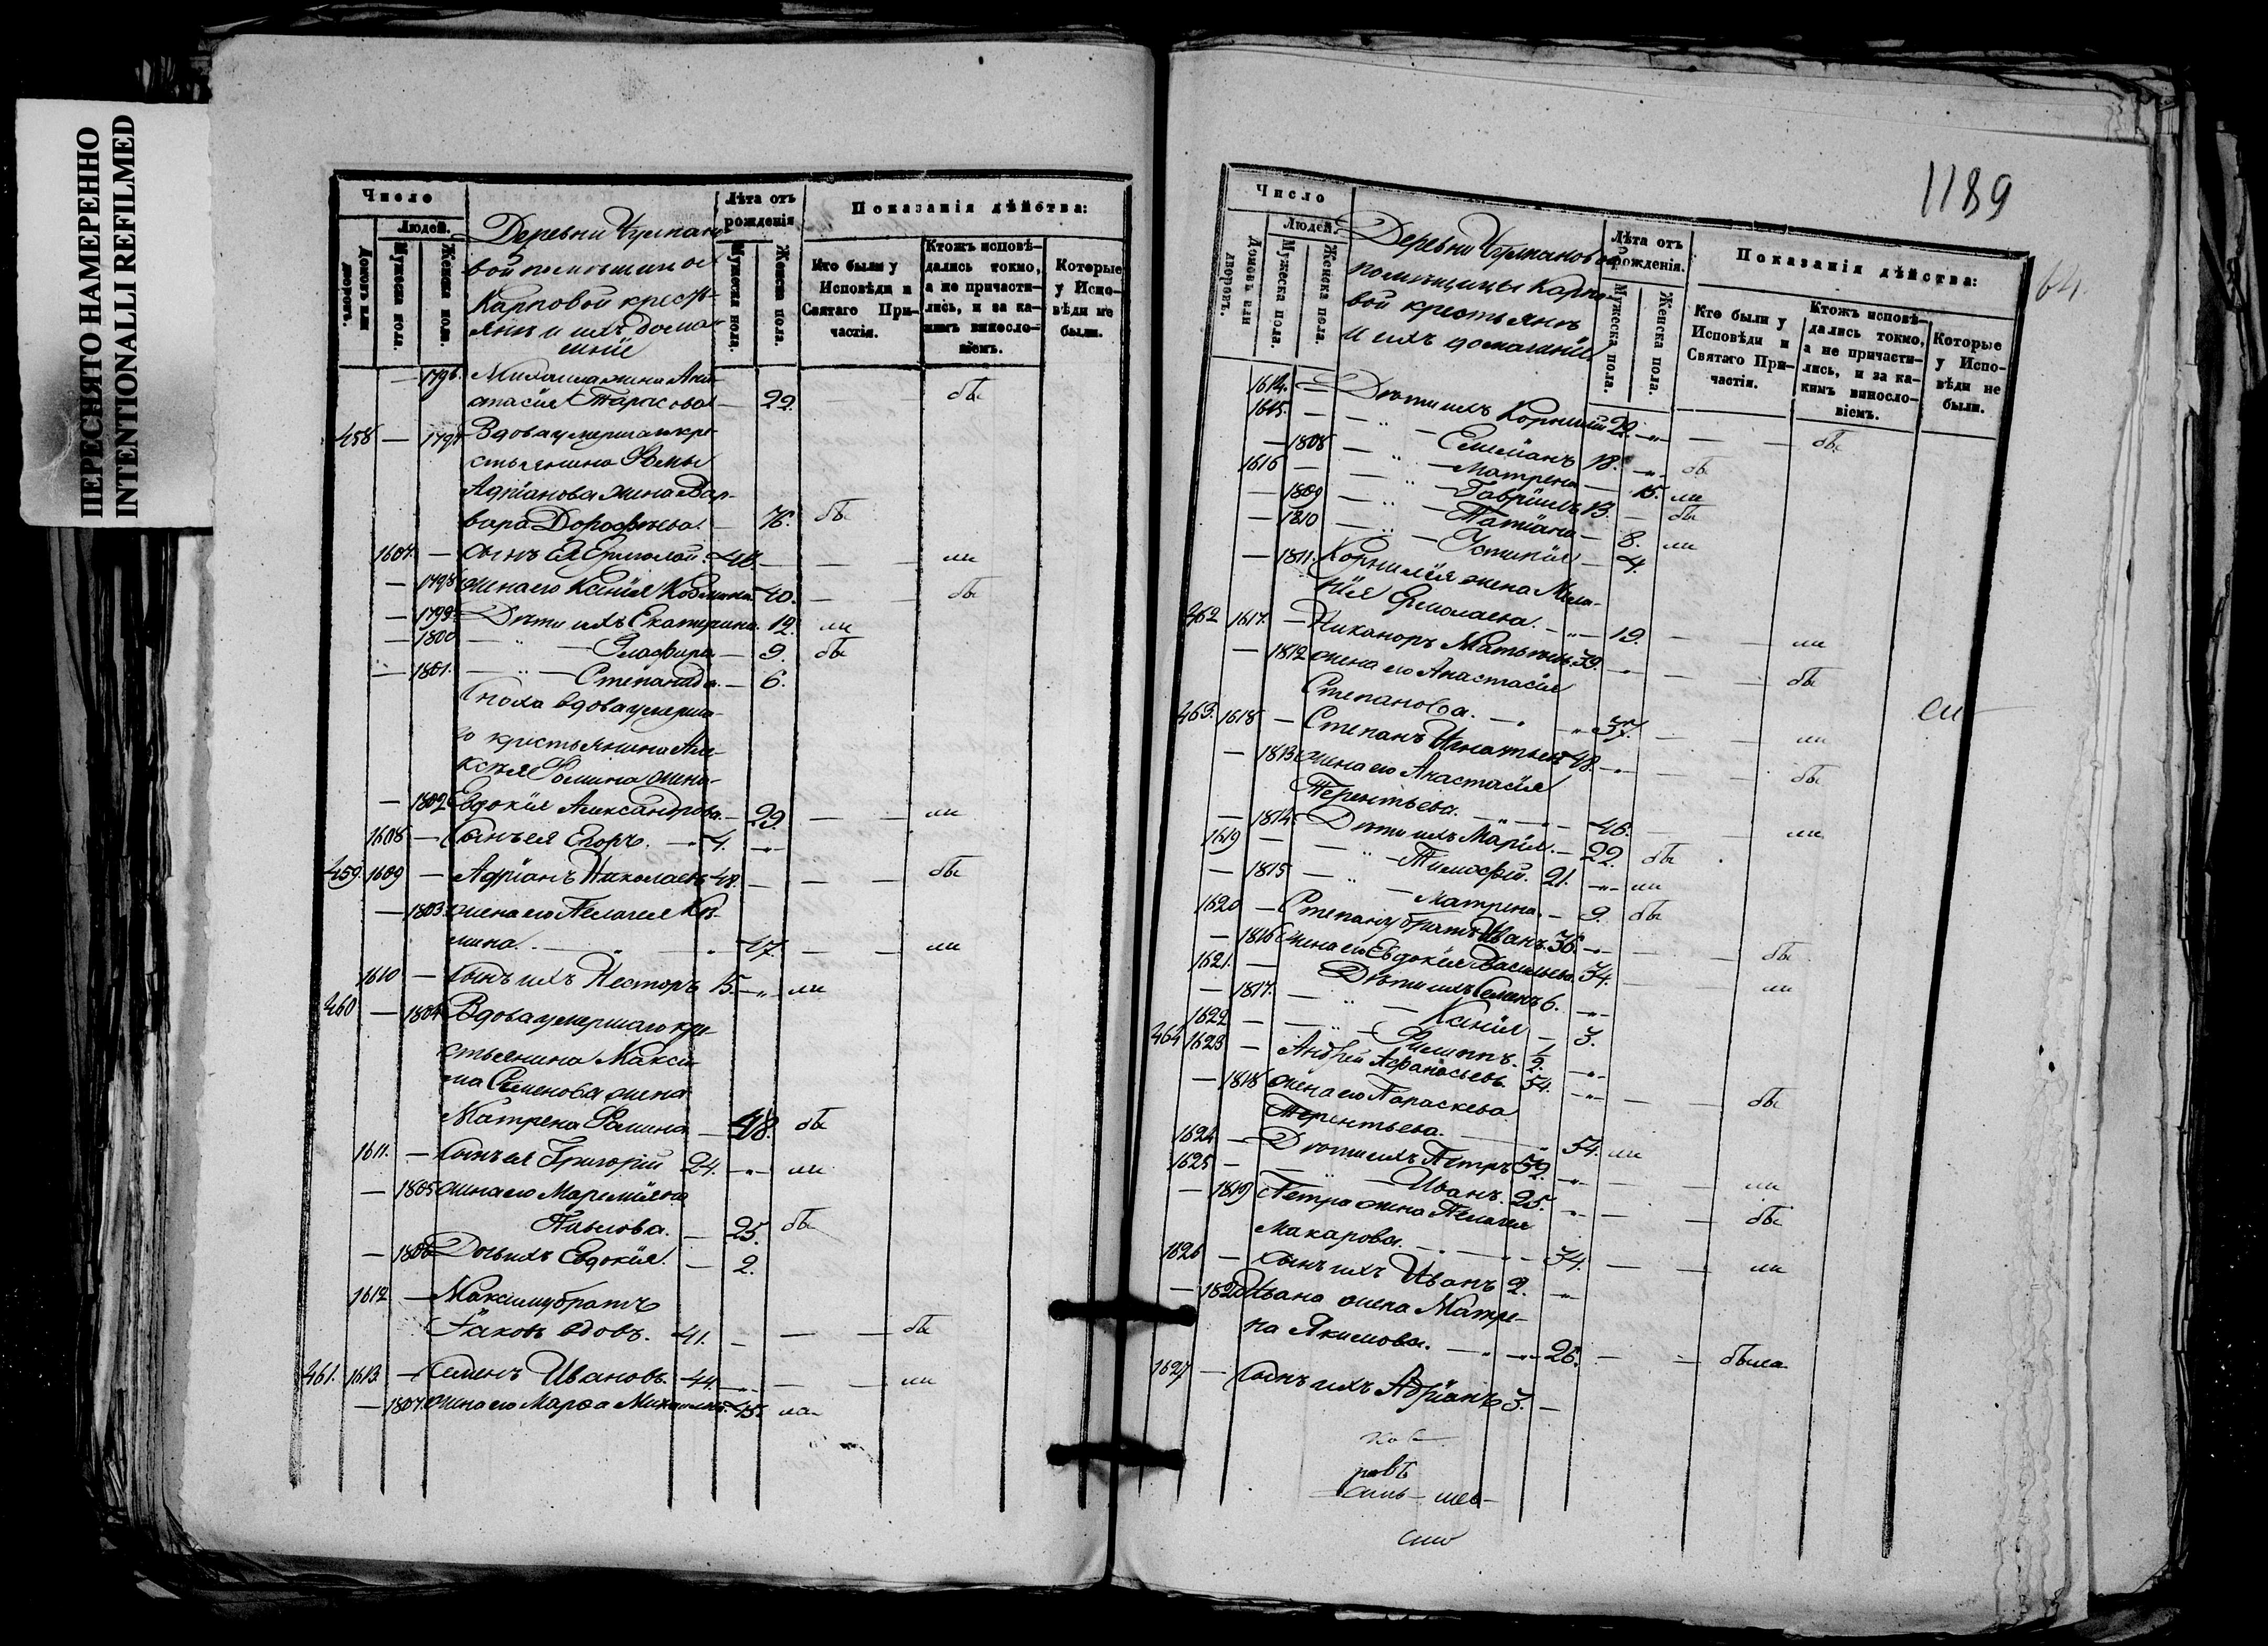 ПЕРЕСНЯТО НАМЕРЕННО
INTENTIONALLI REFILMED
Число
Людей.
Домовъ или дворовъ.
Мужеска пола.
Женска пола.
Деревни Чулпано
вой помѣщицы
Карповой кресть-
янъ и ихъ дома-
шніе
Лѣта отъ рожденія
Мужеска пола.
Женска пола.
Показанія дѣйства:
Кто были у Исповѣди и Святаго При-частія.
Ктожъ исповѣ-дались токмо, а не причасти-лись, и за ка-кимъ винносло-віемъ.
Которые у Испо-вѣди не были.
— 1796. Михаила жена Ана-
стасія Тарасова — 22. — — бы
458 — 1797 Вдова умершаго кре-
стьянина Ѳомы
Адріанова жена Вар-
вара Дорофѣева. — 76. бы
1607. — сынъ ея Ермолай. 40. — — — ли
— 1798 жена его Ксенія Козмина. 40. — — бы
— 1799. Дѣти ихъ Екатерина. 12. ли
— 1800 — " — Гласфира — 9. бы
— 1801. — " — Степанида. — 6.
Сноха вдова умерша-
го крестьянина Але-
ксѣя Ѳомина жена
— 1802 Евдокія Александрова. — 29. — — ли
1608 — Сынъ ея Егоръ. — 4. —"—
459. 1609 — Адріанъ Николаевъ 48. — — — бы
— 1803. жена его Пелагея Ко-
мина. — " — " 47. — — ли
1610 — Сынъ ихъ Несторъ 15. —"— ли
460 — 1804 Вдова умершаго кре-
стьянина Макси-
ма Семенова жена
Матрена Ѳомина — 48. бы
1611. — Сынъ ея Григорій 24. —"— ли
— 1805 жена его Маремьяна
Павлова. — 25. бы
— 1806 Дочь ихъ Евдокія. — 2.
1612 — Максиму братъ
Іаковъ вдовъ. 41. — — — бы
461. 1613. — Семенъ Ивановъ. 44. —"— — — ли
— 1807. жена его Марѳа Михайлова. 45. ла
1189
64.
Число
Людей.
Домовъ или дворовъ.
Мужеска пола.
Женска пола.
Деревни Чулпановой
помѣщицы Карпо-
вой крестьянъ
и ихъ домашніе
Лѣта отъ рожденія.
Мужеска пола.
Женска пола.
Показанія дѣйства:
Кто были у Исповѣди и Святаго При-частія.
Ктожъ исповѣ-дались токмо, а не причасти-лись, и за ка-кимъ винносло-віемъ.
Которые у Испо-вѣди не были.
1614. — Дѣти ихъ Корнилій 22. —"— — — бы
1615. — — " — Емиліанъ 18. —"— бы
— 1808 — " — Матрена — 15. ли
1616 — — " — Гавріилъ 13. — бы
— 1809 — " — Татіана — 8. ли
— 1810 — " — Устинія — 4.
— 1811. Корнилія жена Мела-
нія Ермолаева. —"— 19. — — ли
462 1617. — Никаноръ Матвѣевъ. 39. —"— — — бы
— 1812 жена его Анастасія
Степанова. — " 37. — — ли
463. 1618 — Степанъ Игнатьевъ 48. —"— — — бы
— 1813 жена его Анастасія
Терентьева. — " — 46. — — ли
— 1814. Дѣти ихъ Марія. — 22. бы
1619 — — " — Тимофей. 21. —"— ли
— 1815 — " — Матрена. — 9. бы
1620 — Степану братъ Иванъ. 36. —"— — — бы
— 1816 жена его Евдокія Васильева. 34. — — ли
1621. — Дѣти ихъ Семенъ 6. —"—
— 1817. — " — Ксенія — 3.
1622 — — " — Филиппъ. 1/2. —"—
464 1623 — Андрей Афанасьевъ. 54. —"— — — бы
— 1818 жена его Параскева
Терентьева. — " 54. ли
1624 — Дѣти ихъ Петръ 32. —"— — — ли
1625 — — Иванъ. 25. —"— — — бы
— 1819 Петра жена Пелагея
Макарова. — " — 34. — — ли
1626 — Сынъ ихъ Иванъ 2. —"
— 1820 Ивана жена Матре-
на Якимова. — " —"— 26. — — была
1627 — Сынъ ихъ Адріанъ 3. —